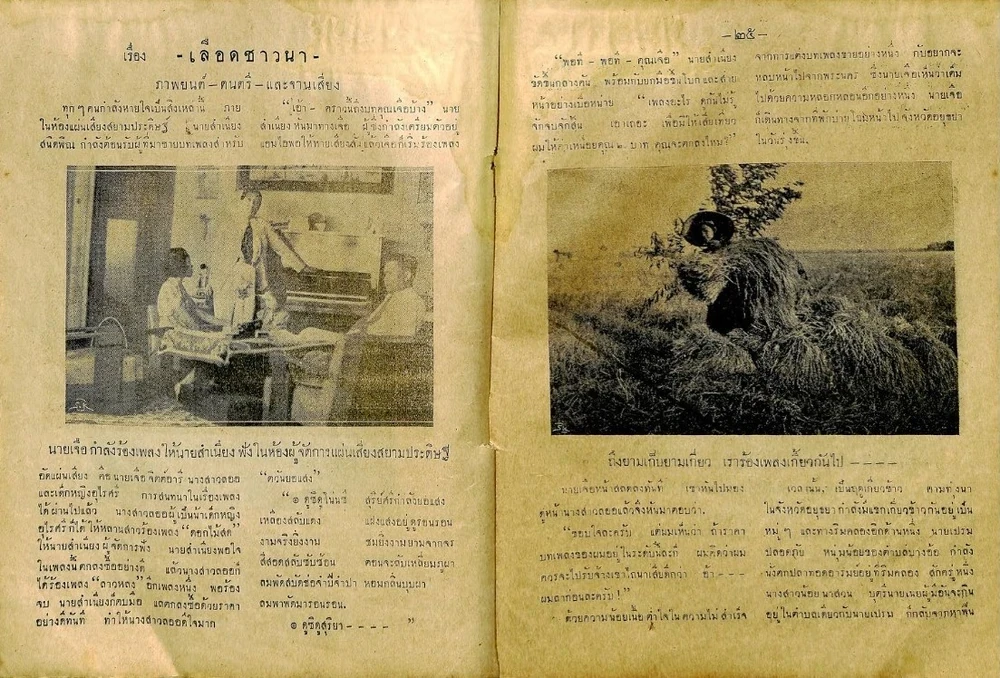 เรื่อง -เลือดชาวนา-
ภาพยนต์-ดนตรี-และจานเสียง
ทุกๆคนกำลังหายใจเป็นสิ่งเหล่านี้ ภาย
ในห้องแผ่นเสียงสยามประดิษฐ์ นายสำเนียง
สนิทพิณ กำลังต้อนรับผู้ที่มาขายบทเพลงสำหรับ
"เอ้า- คราวนี้ถึงบทคุณเจือบ้าง" นาย
สำเนียง หันมาทางเจือ ผู้ซึ่งกำลังเตรียมตัวอยู่
แอมไอพอให้หายเสียงสั่น แล้วเจือก็เริ่มร้องเพลง
นายเจือกำลังร้องเพลงให้นายสำเนียง ฟังในห้องผู้จัดการแผ่นเสียงสยามประดิษฐ์
อัดแผ่นเสียง คือ นายเจือ จิตต์อารี นางสาวลออ
และเด็กหญิงอุไรศรี การสนทนาในเรื่องเพลง
ได้ผ่านไปแล้ว นางสาวลออผู้เป็นน้าเด็กหญิง
อุไรศรีก็ได้ให้หลานสาวร้องเพลง "ดอกไม้สด"
ให้นายสำเนียง ผู้จัดการฟัง นายสำเนียงพอใจ
ในเพลงนี้ ตกลงซื้ออย่างดี แล้วนางสาวลออก็
ได้ร้องเพลง "ลาวหลง" อีกเพลงหนึ่ง พอร้อง
จบ นายสำเนียงก็ตบมือ และตกลงซื้อด้วยราคา
อย่างดีทันที ทำให้นางสาวลออดีใจมาก
"ตวันยอแสง"
"๏ ดูซิดูในนที สุรีย์ศรีกำลังยอแสง
เหลืองสลับแดง แฝงแสงอยู่ครอนรอน
งามจริงยิ่งงาม ชมยิ่งงามยามจากจร
สีสอดสลับซับซ้อน ตอนจะลับเหลี่ยมภูผา
ลมพัดสบัดช่อจำปีจำปา หอมกลิ่นบุบผา
ลมพาพัดมารอนรอน.
๏ ดูซิดูสุริยา - - - - "
-๒๕-
"พอที - พอที - คุณเจือ" นายสำเนียง
ขัดขึ้นกลางคัน พร้อมกับยกมือขึ้นโบกและส่าย
หน้าอย่างเบื่อหน่าย "เพลงอะไร ดูกันไม่รู้
จักจบจักสิ้น เอาเถอะ เพื่อมิให้เสียเที่ยว
ผมให้ค่าเหนื่อยคุณ ๒ บาท คุณจะตกลงไหม?"
จากการแต่งบทเพลงขายอย่างหนึ่ง กับอยากจะ
หลบหน้าไปจากพระนคร ซึ่งนายเจือเห็นว่าเต็ม
ไปด้วยความหลอกหลอนอีกอย่างหนึ่ง นายเจือ
ก็เดินทางจากที่พักบ่ายโฉมหน้าไปจังหวัดอยุธยา
ในวันรุ่งขึ้น.
ถึงยามเก็บยามเกี่ยว เราร้องเพลงเกี้ยวกันไป - - - -
นายเจือหน้าสลดลงทันที เขาหันไปมอง
ดูหน้านางสาวลออแล้วจึงหันมาตอบว่า.
"ขอบใจละครับ แต่ผมเห็นว่า ถ้าราคา
บทเพลงของผมอยู่ในระดับนี้ละก็ ผมคิดว่าผม
ควรจะไปรับจ้างเขาไถนาเสียดีกว่า อ้า - -
ผมลาก่อนละครับ!"
ด้วยความน้อยเนื้อต่ำใจในความไม่สำเร็จ
เวลานั้น เป็นฤดูเกี่ยวข้าว ตามท้องนา
ในจังหวัดอยุธยา กำลังมีแขกเกี่ยวข้าวกันอยู่เป็น
หมู่ๆ และทางริมคลองอีกด้านหนึ่ง นายเปรม
ปลอดภัย หนุ่มน้อยของตำบลบางอ้อ กำลัง
นั่งตกปลาทอดอารมย์อยู่ที่ริมคลอง สักครู่หนึ่ง
นางสาวน้อย นาสวน บุตรีนายเนยผู้มีอันจะกิน
อยู่ในตำบลเดียวกับนายเปรม ก็กลับจากหาฟืน